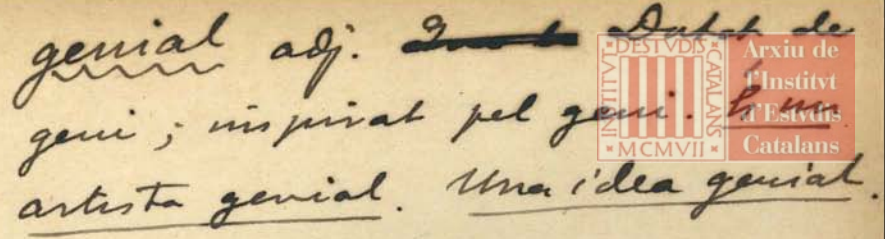 genial adj. Dotat de
geni; inspirat pel geni. És un
artista genial. Una idea genial.
INSTITVT D'ESTVDIS CATALANS
MCMVII
Arxiu de
l'Institvt
d'Estvdis
Catalans